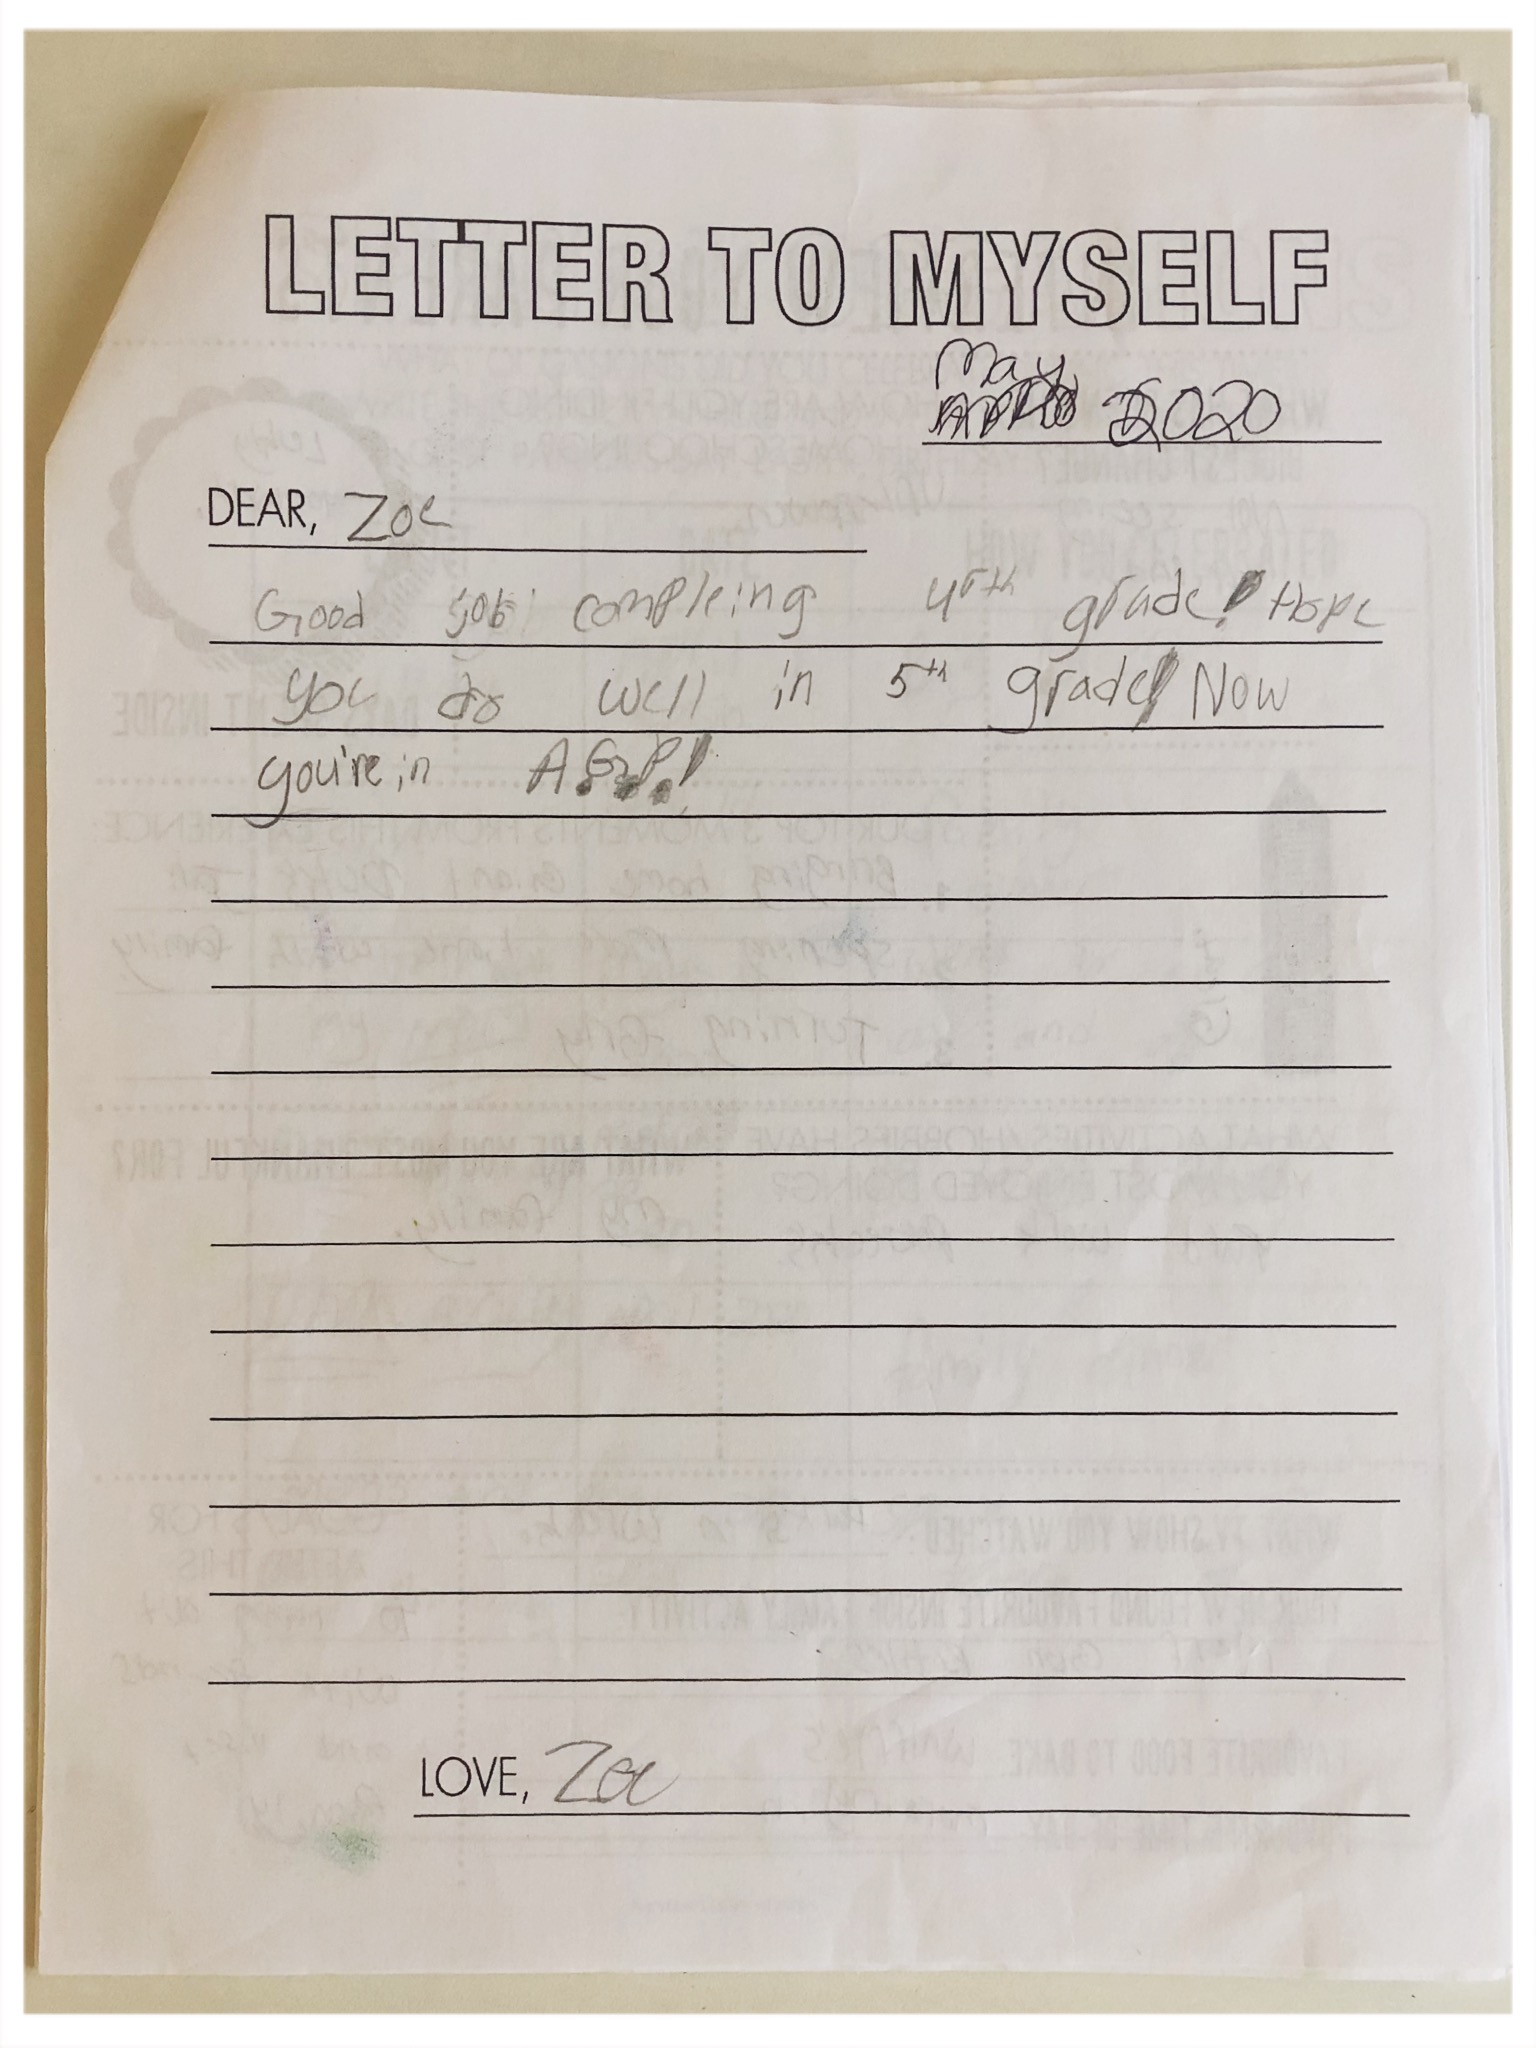 LETTER TO MYSELF
May
2020
DEAR, Zoe
Good job compleing 4rth grade! Hope
you do well in 5th grade! Now
you're in A.G.P.!
LOVE, Zoe